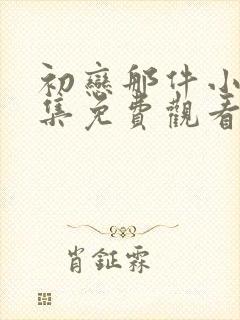 初戀那件小
集免費觀看
肖鉦霖